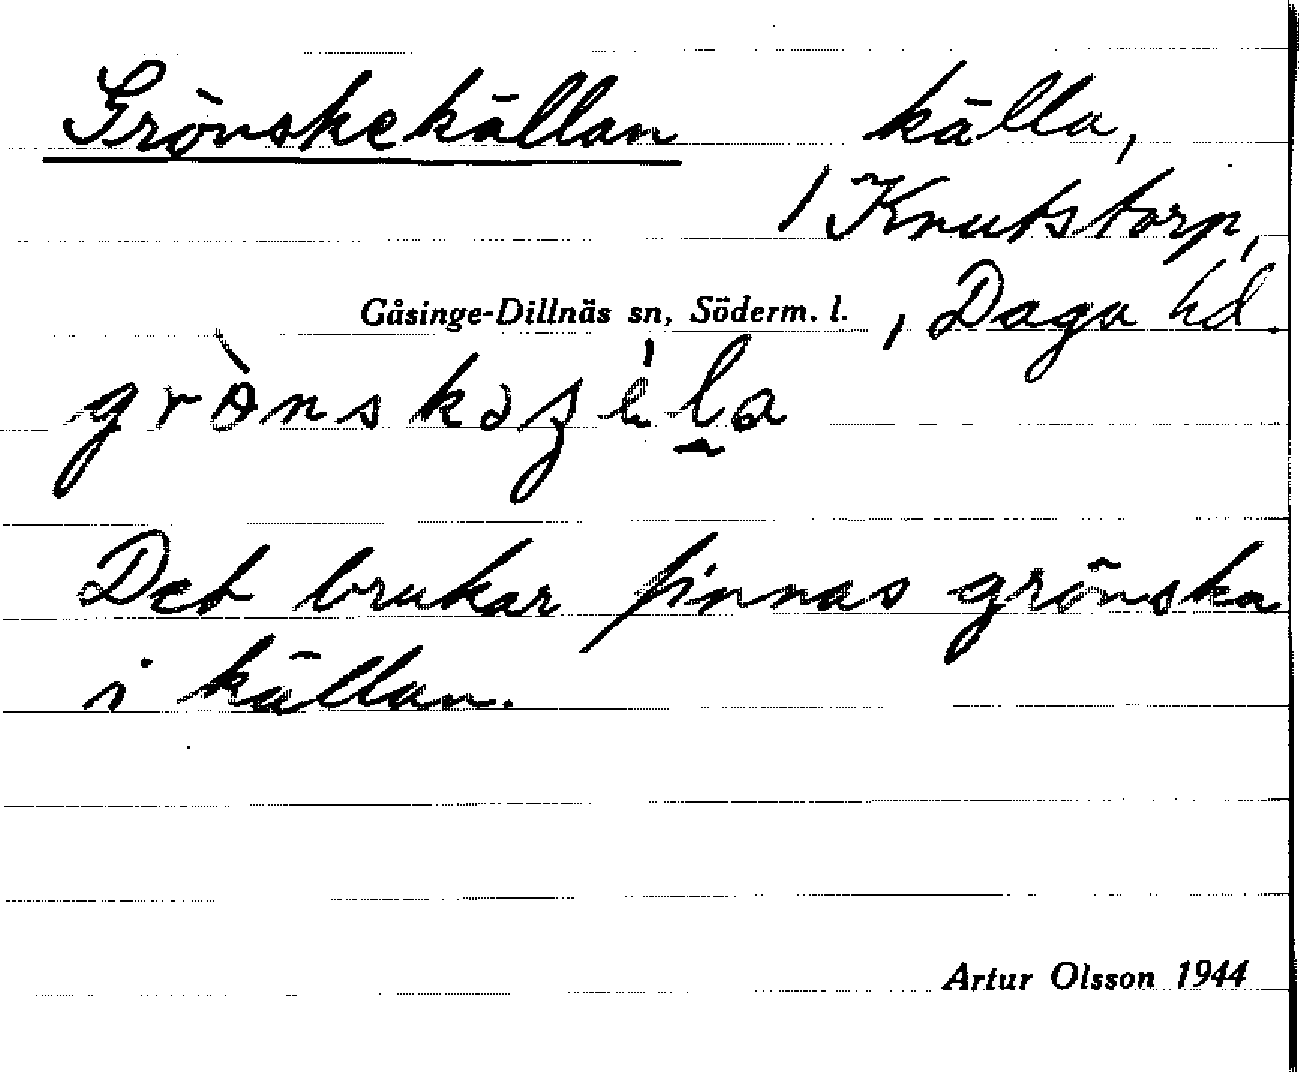 Grönskekällan källa,
/ Knutstorp,
Gåsinge-Dillnäs sn, Söderm. l. , Daga hd.
Det brukar finnas grönska
i källan.
Artur Olsson 1944